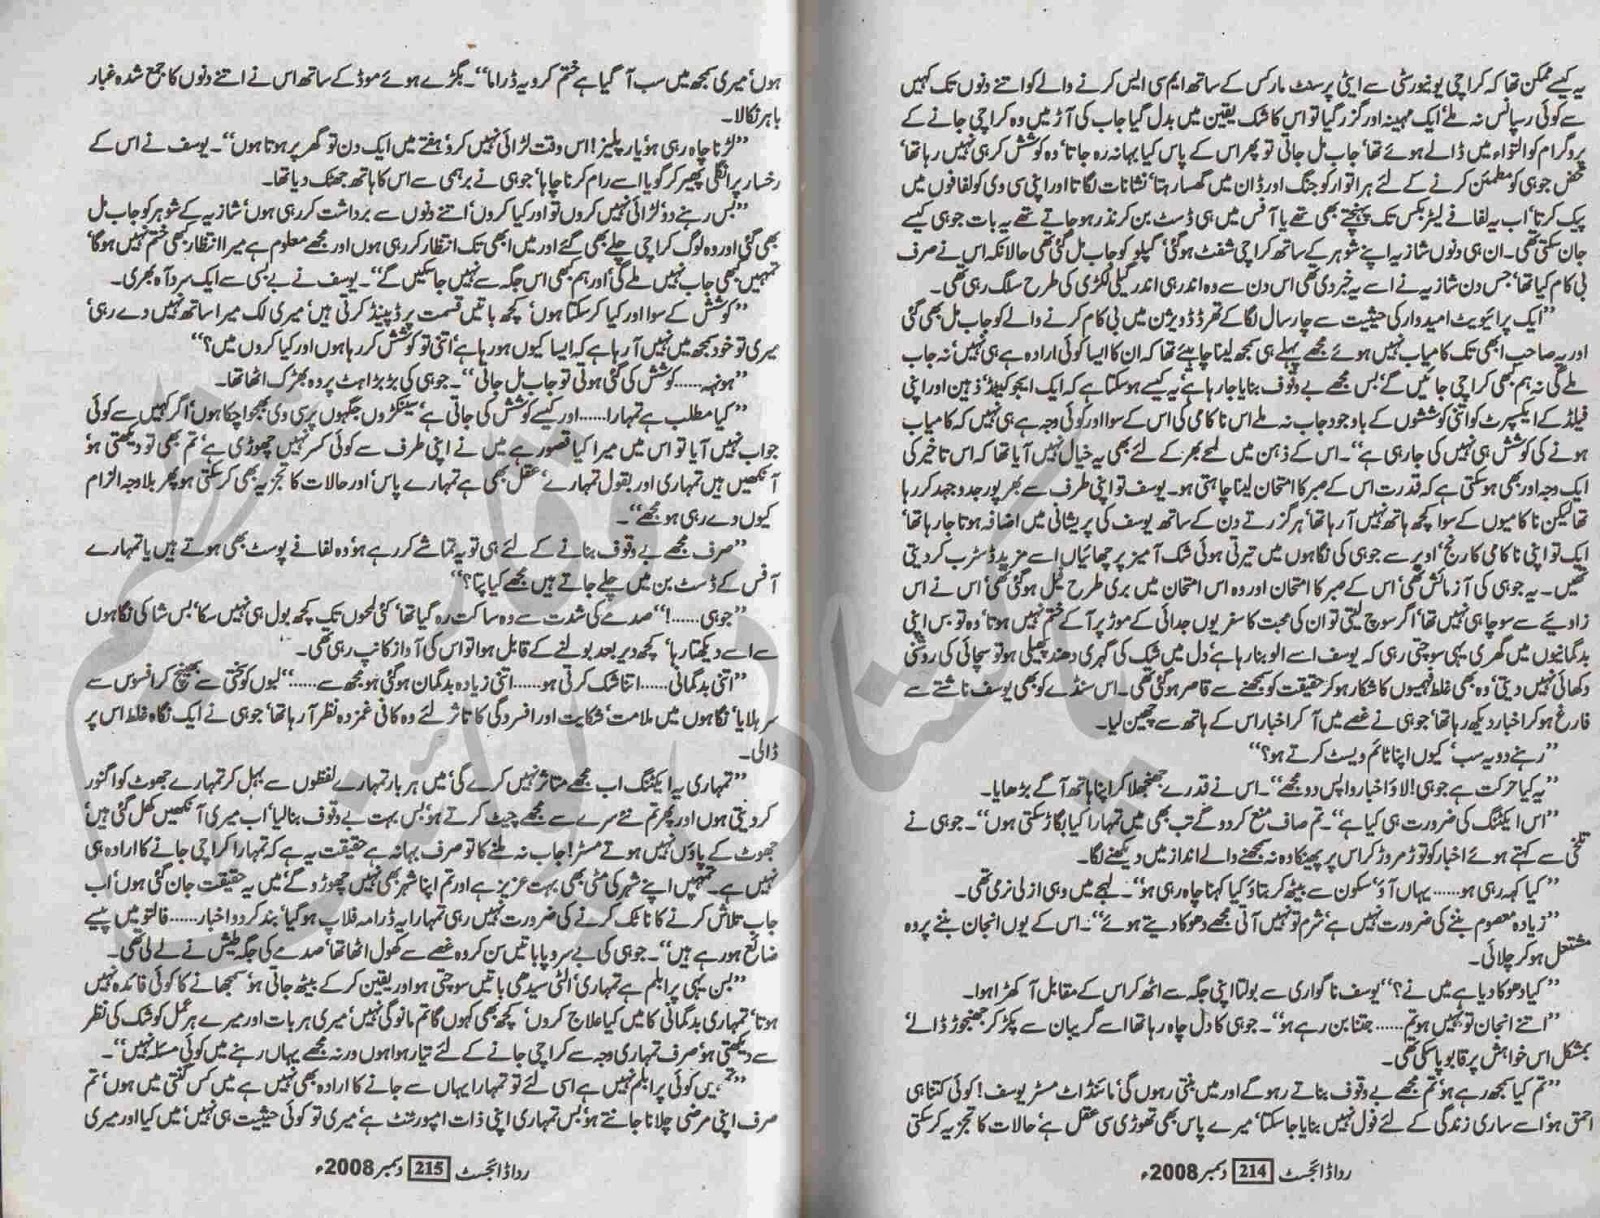 یہ کیسے ممکن تھا کہ کراچی یونیورسٹی سے ایٹی پرسنٹ مارکس کے ساتھ ایم سی ایس کرنے والے کو اتنے دنوں تک کہیں
سے کوئی رسپانس نہ ملے‘ ایک مہینہ اور گزر گیا تو اس کا شک یقین میں بدل گیا جاب کی آڑ میں وہ کراچی جانے کے
پروگرام کو التواء میں ڈالے ہوئے تھا‘ جاب مل جاتی تو پھر اس کے پاس کیا بہانہ رہ جاتا‘ وہ کوشش کر ہی نہیں رہا تھا‘
محض جوہی کو مطمئن کرنے کے لئے ہر اتوار کو جنگ اور ڈان میں گھسا رہتا‘ نشانات لگاتا اور اپنی سی وی کو لفافوں میں
پیک کرتا‘ اب یہ لفافے لیٹر بکس تک پہنچتے بھی تھے یا آفس میں ہی ڈسٹ بن کر نذر ہو جاتے تھے یہ بات جوہی کیسے
جان سکتی تھی۔ ان ہی دنوں شازیہ اپنے شوہر کے ساتھ کراچی شفٹ ہو گئی‘ گپلو کو جاب مل گئی تھی حالانکہ اس نے صرف
بی کام کیا تھا‘ جس دن شازیہ نے اسے یہ خبر دی تھی اس دن سے وہ اندر ہی اندر گیلی لکڑی کی طرح سلگ رہی تھی۔
’’ایک پرائیویٹ امیدوار کی حیثیت سے چار سال لگا کے تھرڈ ڈویژن میں بی کام کرنے والے کو جاب مل بھی گئی
اور یہ صاحب ابھی تک کامیاب نہیں ہوئے مجھے پہلے ہی سمجھ لینا چاہئے تھا کہ ان کا ایسا کوئی ارادہ ہے ہی نہیں‘ نہ جاب
ملے گی نہ ہم کبھی کراچی جائیں گے‘ بس مجھے بے وقوف بنایا جا رہا ہے‘ یہ کیسے ہو سکتا ہے کہ ایک ایجوکیٹڈ‘ ذہین اور اپنی
فیلڈ کے ایکسپرٹ کو اتنی کوششوں کے باوجود جاب نہ ملے اس ناکامی کی اس کے سوا اور کوئی وجہ ہے ہی نہیں کہ کامیاب
ہونے کی کوشش ہی نہیں کی جا رہی ہے‘‘۔ اس کے ذہن میں لمحے بھر کے لئے بھی یہ خیال نہیں آیا تھا کہ اس تاخیر کی
ایک وجہ اور بھی ہو سکتی ہے کہ قدرت اس کے صبر کا امتحان لینا چاہتی ہو۔ یوسف تو اپنی طرف سے بھرپور جدوجہد کر رہا
تھا لیکن ناکامیوں کے سوا کچھ ہاتھ نہیں آ رہا تھا‘ ہر گزرتے دن کے ساتھ یوسف کی پریشانی میں اضافہ ہوتا جا رہا تھا‘
ایک تو اپنی ناکامی کا رنج‘ اوپر سے جوہی کی نگاہوں میں تیرتی ہوئی شک آمیز پرچھائیاں اسے مزید ڈسٹرب کر دیتی
تھیں۔ یہ جوہی کی آزمائش تھی‘ اس کے صبر کا امتحان اور وہ اس امتحان میں بری طرح فیل ہو گئی تھی‘ اس نے اس
زاویئے سے سوچا ہی نہیں تھا‘ اگر سوچ لیتی تو ان کی محبت کا سفر یوں جدائی کے موڑ پر آ کے ختم نہیں ہوتا‘ وہ تو بس اپنی
بدگمانیوں میں گھری یہی سوچتی رہی کہ یوسف اسے الو بنا رہا ہے‘ دل میں شک کی گہری دھند پھیلی ہو تو سچائی کی روشنی
دکھائی نہیں دیتی‘ وہ بھی غلط فہمیوں کا شکار ہو کر حقیقت کو سمجھنے سے قاصر ہو گئی تھی۔ اس سنڈے کو بھی یوسف ناشتے سے
فارغ ہو کر اخبار دیکھ رہا تھا‘ جوہی نے غصے میں آ کر اخبار اس کے ہاتھ سے چھین لیا۔
’’رہنے دو یہ سب‘ کیوں اپنا ٹائم ویسٹ کرتے ہو؟‘‘
’’یہ کیا حرکت ہے جوہی! لاؤ اخبار واپس دو مجھے‘‘۔ اس نے قدرے جھنجھلا کر اپنا ہاتھ آگے بڑھایا۔
’’اس ایکٹنگ کی ضرورت ہی کیا ہے‘‘۔ تم صاف منع کر دو گے تب بھی میں تمہارا کیا بگاڑ سکتی ہوں‘‘۔ جوہی نے
تلخی سے کہتے ہوئے اخبار کو توڑ مروڑ کر اس پر پھینکا وہ نہ سمجھنے والے انداز میں دیکھنے لگا۔
’’کیا کہہ رہی ہو...... یہاں آؤ‘ سکون سے بیٹھ کر بتاؤ کیا کہنا چاہ رہی ہو‘‘۔ لہجے میں وہی ازلی نرمی تھی۔
’’زیادہ معصوم بننے کی ضرورت نہیں ہے‘ شرم تو نہیں آتی مجھے دھوکا دیتے ہوئے‘‘۔ اس کے یوں انجان بننے پر وہ
مشتعل ہو کر چلائی۔
’’کیا دھوکا دیا ہے میں نے؟‘‘ یوسف ناگواری سے بولتا اپنی جگہ سے اٹھ کر اس کے مقابل آ کھڑا ہوا۔
’’اتنے انجان تو نہیں ہو تم...... جتنا بن رہے ہو‘‘۔ جوہی کا دل چاہ رہا تھا اسے گریبان سے پکڑ کر جھنجوڑ ڈالے‘
بمشکل اس خواہش پر قابو پا سکی تھی۔
’’تم کیا سمجھ رہے ہو‘ تم مجھے بے وقوف بناتے رہو گے اور میں بنتی رہوں گی‘ مائنڈ اٹ مسٹر یوسف! کوئی کتنا ہی
احمق ہو‘ اسے ساری زندگی کے لئے فول نہیں بنایا جا سکتا‘ میرے پاس بھی تھوڑی سی عقل ہے‘ حالات کا تجزیہ کر سکتی
ردا ڈائجسٹ 214 دسمبر 2008ء
ہوں‘ میری سمجھ میں سب آ گیا ہے ختم کرو یہ ڈراما‘‘۔ بگڑے ہوئے موڈ کے ساتھ اس نے اتنے دنوں کا جمع شدہ غبار
باہر نکالا۔
’’لڑنا چاہ رہی ہو‘ یار پلیز! اس وقت لڑائی نہیں کرو‘ ہفتے میں ایک دن تو گھر پر ہوتا ہوں‘‘۔ یوسف نے اس کے
رخسار پر انگلی پھیر کر گویا اسے رام کرنا چاہا‘ جوہی نے برہمی سے اس کا ہاتھ جھٹک دیا تھا۔
’’بس رہنے دو‘ لڑائی نہیں کروں تو اور کیا کروں‘ اتنے دنوں سے برداشت کر رہی ہوں‘ شازیہ کے شوہر کو جاب مل
بھی گئی اور وہ لوگ کراچی چلے بھی گئے اور میں ابھی تک انتظار کر رہی ہوں اور مجھے معلوم ہے میرا انتظار کبھی ختم نہیں ہو گا‘
تمہیں کبھی جاب نہیں ملے گی‘ اور ہم کبھی اس جگہ سے نہیں جا سکیں گے‘‘۔ یوسف نے بے بسی سے ایک سرد آہ بھری۔
’’کوشش کے سوا اور کیا کر سکتا ہوں‘ کچھ باتیں قسمت پر ڈیپنڈ کرتی ہیں‘ میری لک میرا ساتھ نہیں دے رہی‘
میری تو خود سمجھ میں نہیں آ رہا ہے کہ ایسا کیوں ہو رہا ہے‘ اتنی تو کوشش کر رہا ہوں اور کیا کروں میں؟‘‘
’’ہونہہ...... کوشش کی گئی ہوتی تو جاب مل جاتی‘‘۔ جوہی کی بڑبڑاہٹ پر وہ بھڑک اٹھا تھا۔
’’کیا مطلب ہے تمہارا...... اور کیسے کوشش کی جاتی ہے‘ سینکڑوں جگہوں پر سی وی بھجوا چکا ہوں‘ اگر کہیں سے کوئی
جواب نہیں آیا تو اس میں میرا کیا قصور ہے میں نے اپنی طرف سے کوئی کسر نہیں چھوڑی ہے‘ تم بھی تو دیکھتی ہو‘
آنکھیں ہیں تمہاری اور بقول تمہارے‘ عقل بھی ہے تمہارے پاس‘ اور حالات کا تجزیہ بھی کر سکتی ہو پھر بلاوجہ الزام
کیوں دے رہی ہو مجھے‘‘۔
’’صرف مجھے بے وقوف بنانے کے لئے ہی تو یہ تماشے کر رہے ہو‘ وہ لفافے پوسٹ بھی ہوتے ہیں یا تمہارے
آفس کے ڈسٹ بن میں چلے جاتے ہیں مجھے کیا پتا؟‘‘
’’جوہی......!‘‘ صدمے کی شدت سے وہ ساکت رہ گیا تھا‘ کئی لمحوں تک کچھ بول ہی نہیں سکا‘ بس شاکی نگاہوں
سے اسے دیکھتا رہا‘ کچھ دیر بعد بولنے کے قابل ہوا تو اس کی آواز کانپ رہی تھی۔
’’اتنی بدگمانی...... اتنا شک کرتی ہو...... اتنی زیادہ بدگمان ہو گئی ہو مجھ سے......‘‘ لبوں کو سختی سے بھینچ کر افسوس سے
سر ہلایا‘ نگاہوں میں ملامت‘ شکایت اور افسردگی کا تاثر لئے وہ کافی غمزدہ نظر آ رہا تھا‘ جوہی نے ایک نگاہ غلط اس پر
ڈالی۔
’’تمہاری یہ ایکٹنگ اب مجھے متاثر نہیں کرے گی‘ میں ہر بار تمہارے لفظوں سے بہل کر تمہارے جھوٹ کو اگنور
کر دیتی ہوں اور پھر تم نئے سرے سے مجھے چیٹ کرتے ہو‘ بس بہت بے وقوف بنا لیا‘ اب میری آنکھیں کھل گئی ہیں‘
جھوٹ کے پاؤں نہیں ہوتے مسٹر! جاب نہ ملنے کا تو صرف بہانہ ہے حقیقت یہ ہے کہ تمہارا کراچی جانے کا ارادہ ہی
نہیں ہے۔ تمہیں اپنے شہر کی مٹی بھی بہت عزیز ہے اور تم اپنا شہر بھی نہیں چھوڑو گے‘ میں یہ حقیقت جان گئی ہوں‘ اب
جاب تلاش کرنے کا ناٹک کرنے کی ضرورت نہیں رہی تمہارا یہ ڈرامہ فلاپ ہو گیا‘ بند کر دو اخبار...... فالتو میں پیسے
ضائع ہو رہے ہیں‘‘۔ جوہی کی بے سروپا باتیں سن کر وہ غصے سے کھول اٹھا تھا‘ صدمے کی جگہ طیش نے لے لی تھی۔
’’بس یہی پرابلم ہے تمہاری‘ الٹی سیدھی باتیں سوچتی ہو اور یقین کر کے بیٹھ جاتی ہو‘ سمجھانے کا کوئی فائدہ نہیں
ہوتا‘ تمہاری بدگمانی کا میں کیا علاج کروں‘ کچھ بھی کہوں گا تم مانو گی نہیں‘ میری ہر بات اور میرے ہر عمل کو شک کی نظر
سے دیکھتی ہو‘ صرف تمہاری وجہ سے کراچی جانے کے لئے تیار ہوا ہوں ورنہ مجھے یہاں رہنے میں کوئی مسئلہ نہیں‘‘۔
کوئی پرابلم نہیں ہے اسی لئے تو تمہارا یہاں سے جانے کا ارادہ بھی نہیں ہے میں کس گنتی میں ہوں‘ تم
صرف اپنی مرضی چلانا جانتے ہو‘ بس تمہاری اپنی ذات امپورٹنٹ ہے‘ میری تو کوئی حیثیت ہی نہیں‘ میں کیا اور میری
ردا ڈائجسٹ 215 دسمبر 2008ء